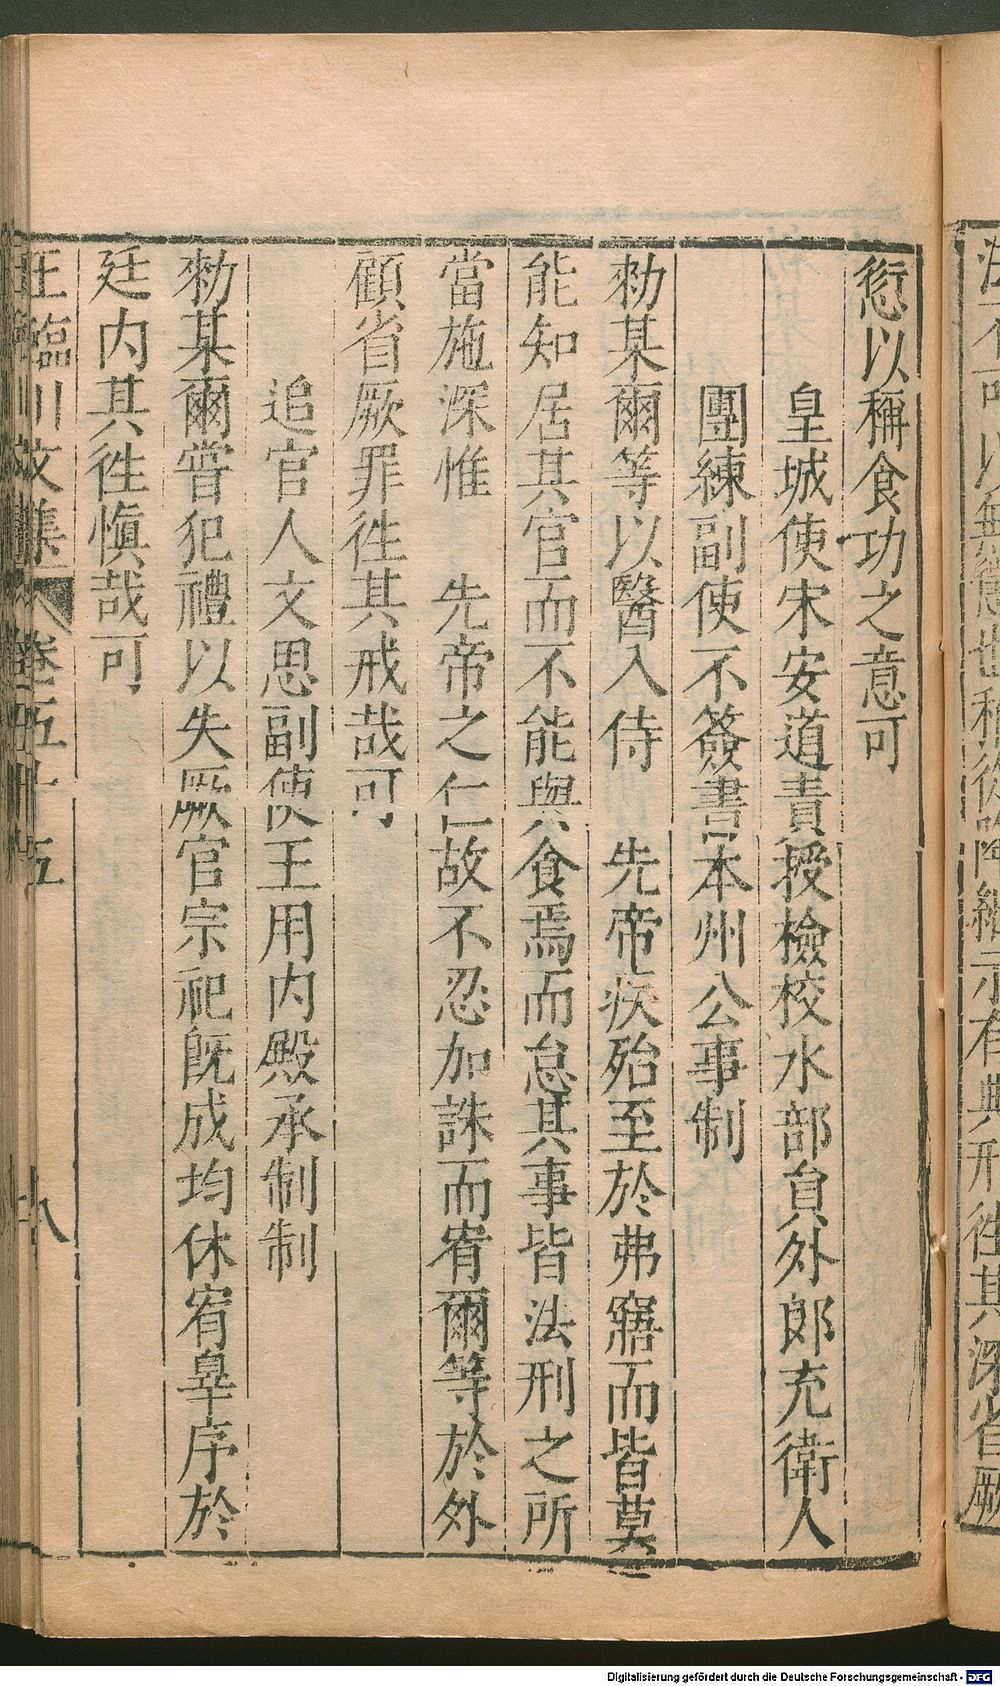 愆以稱食功之意可
皇城使宋安道責授檢校水部員外郎充衛人
團練副使不簽書本州公事制
勑某爾等以醫入侍　先帝疾殆至於弗寤而皆莫
能知居其官而不能與食焉而怠其事皆法刑之所
當施深惟　先帝之仁故不忍加誅而宥爾等於外
顧省厥罪徃其戒哉可
追官人文思副使王用内殿承制制
勑某爾嘗犯禮以失厥官宗祀既成均休宥辠序於
廷内其徃慎哉可
王臨川文集　卷五十五　十八
Digitalisierung gefördert durch die Deutsche Forschungsgemeinschaft - DFG